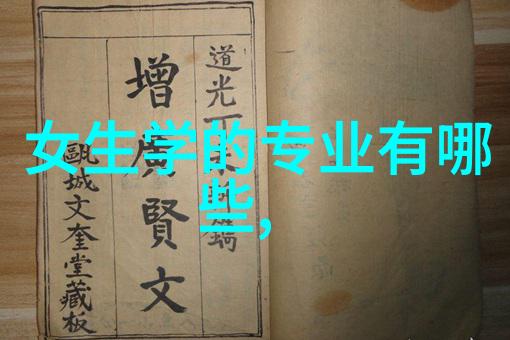 女生学的专业有哪
些,
道光丁未新鐫
增廣賢文
甌城文奎堂藏板